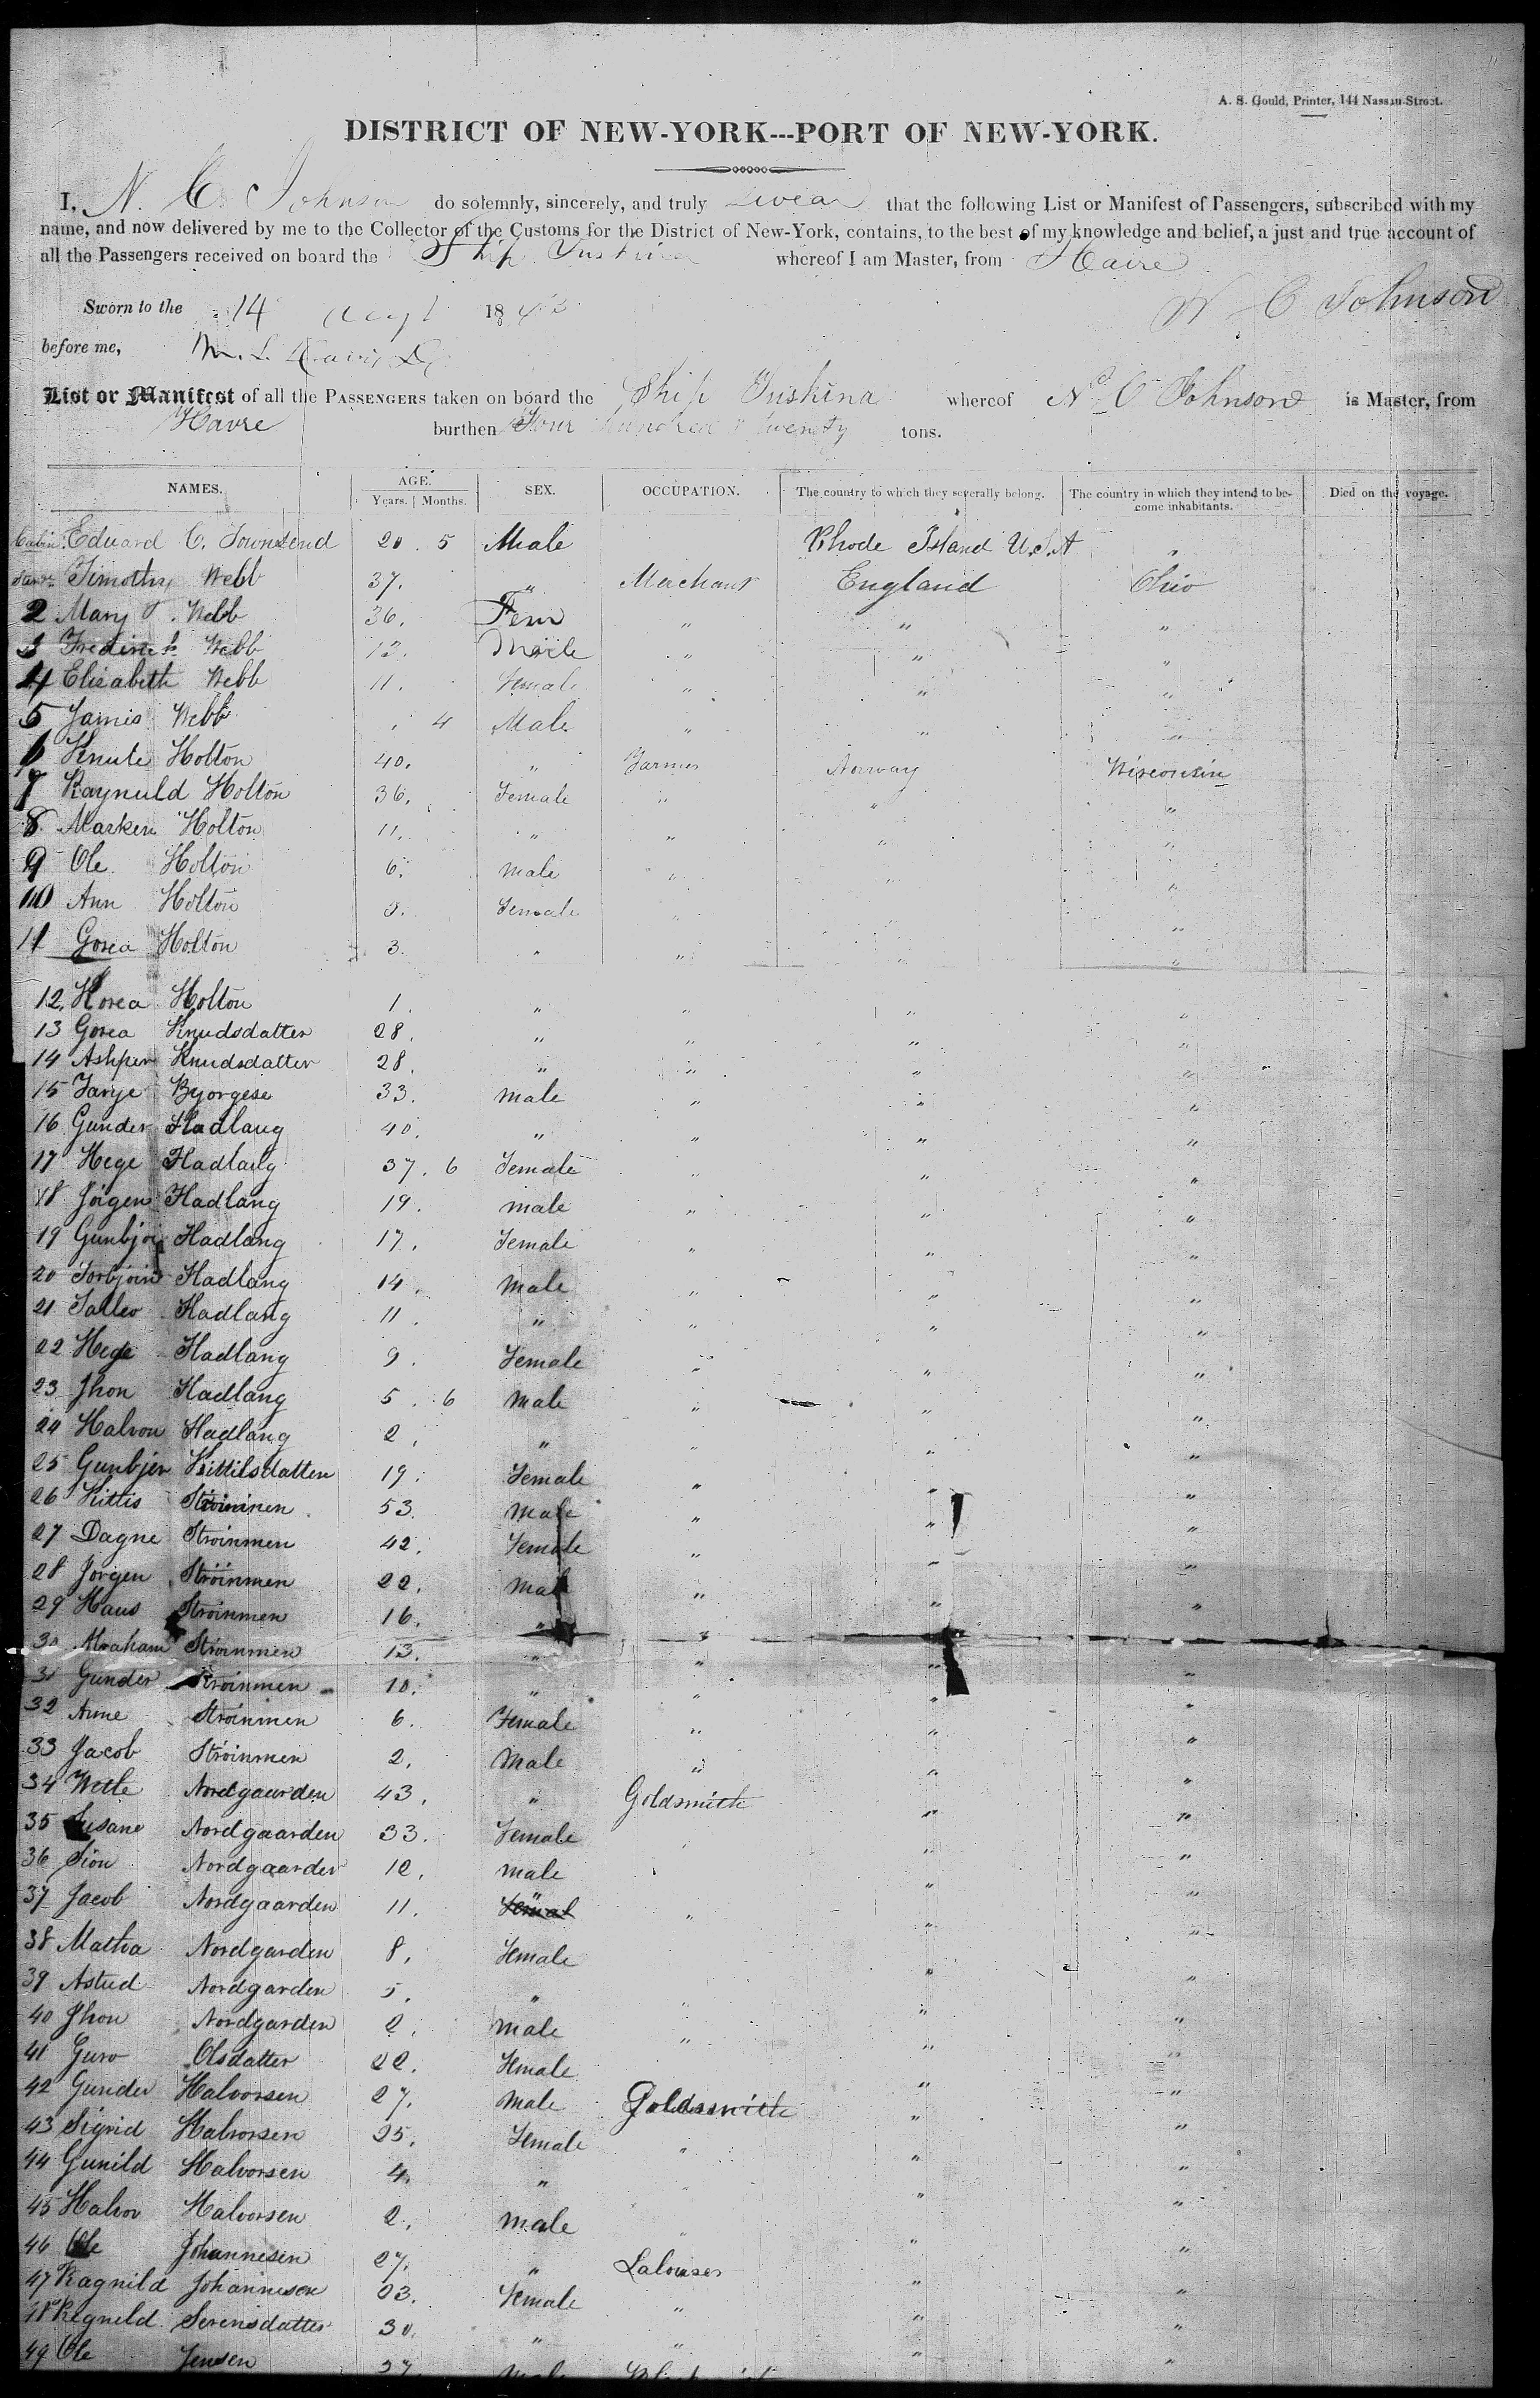 A. S. Gould, Printer, 144 Nassau-Street.
DISTRICT OF NEW-YORK---PORT OF NEW-YORK.
I, N. C. Johnson do solemnly, sincerely, and truly swear that the following List or Manifest of Passengers, subscribed with my
name, and now delivered by me to the Collector of the Customs for the District of New-York, contains, to the best of my knowledge and belief, a just and true account of
all the Passengers received on board the Ship Tuskina whereof I am Master, from Havre
N C Johnson
Sworn to the 14 Augt 1843
before me,
List or Manifest of all the PASSENGERS taken on board the Ship Tuskina whereof N. C Johnson is Master, from
Havre burthen Four hundred & twenty tons.
NAMES. AGE. Years. Months. SEX. OCCUPATION. The country to which they severally belong. The country in which they intend to become inhabitants. Died on the voyage.
Cabin Eduard C. Townsend 20. 5 Male Rhode Island U.S.A "
Timothy Webb 37. " Merchant England Ohio
2 Mary Webb 36. Fem " " "
3 Frederick Webb 12. Male " " "
4 Elisabeth Webb 11. Female " " "
5 James Webb 4 Male " " "
6 Knute Holton 40. " Farmer Norway Wisconsin
7 Raynuld Holton 36. Female " " "
8 Masken Holton 11. " " " "
9 Ole Holton 6. male " " "
10 Ann Holton Female " " "
11 Gorea Holton 3. " " " "
12. Horea Holton 1. " " " "
13 Gorea Knudsdatter 28. " " " "
14 Ashper Knudsdatter 28. " " " "
15 Tarje Byorgese 33. male " " "
16 Gunder Hadlang 40. " " " "
17 Hege Hadlang 37. 6 Female " " "
18 Jörgen Hadlang 19. male " " "
19 Hadlang 17. Female " " "
20 Torbjoin Hadlang 14. male " " "
21 Talleo Hadlang 11. " " " "
22 Hege Hadlang 9. Female " " "
23 Jhon Hadlang 5. 6 male " " "
24 Halvon Hadlang 2. " " " "
25 Gunbjer Kittilsdatten 19. Female " " "
26 Kittis Stroinmen 53. male " " "
27 Dagne Stroinmen 42. Female " " "
28 Jorgen Ströinmen 22. male " " "
29 Haus Stroinmen 16. " " " "
30 Abraham Stroinmen 13. " " "
31 Gunder Stroinmen 10. " " " "
32 Anne Stroinmen 6. Female " " "
33 Jacob Stroinmen 2. Male " " "
34 Wetle Nordgaarden 43. " Goldsmith " "
35 Susane Nordgaarden 33. Female " " "
36 Sion Nordgaarder 12. male " "
37 Jacob Nordgaarden 11. " " " "
38 Mathia Nordgarden 8. Female " "
39 Astud Nordgarden 5. " " " "
40 Jhon Nordgarden 2. male " " "
41 Guro Olsdatter 22. Female " "
42 Gunder Halvorsen 27. male Goldsmith " "
43 Sigrid Halvorsen 25. Female " " "
44 Gunild Halvorsen 4. " " "
45 Halvor Halvorsen 2. male " " "
46 Ole Johannesen 27. " Labourer " "
47 Ragnild Johannesen 23. Female " " "
48 Regneld Serensdatter 30. " " " "
49 Ole Jensen 37. Male